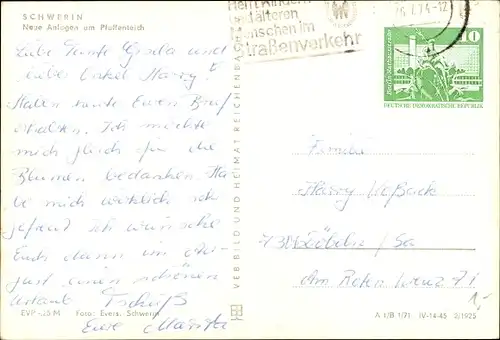 SCHWERIN
Neue Anlagen am Pfaffenteich
Liebe Tante Gisela und
lieber Onkel Harry!
Haben heute Euren Brief
erhalten. Ich möchte
mich gleich für die
Blumen bedanken. Ha
be mich wirklich sehr
gefreut. Ich wünsche
Euch dann im Au-
gust einen schönen
Urlaub. Tschüß
Eure
EVP -,25 M Foto: Evers, Schwerin
VEB BILD UND HEIMAT REICHENBACH
Helft Kindern
älteren
Menschen im
Straßenverkehr
26.7.74-12
10
DEUTSCHE DEMOKRATISCHE REPUBLIK
Familie
Harry
Döbeln / Sa
Am Roten Kreuz 71
A 1/B 1/71 IV-14-45 2/1925